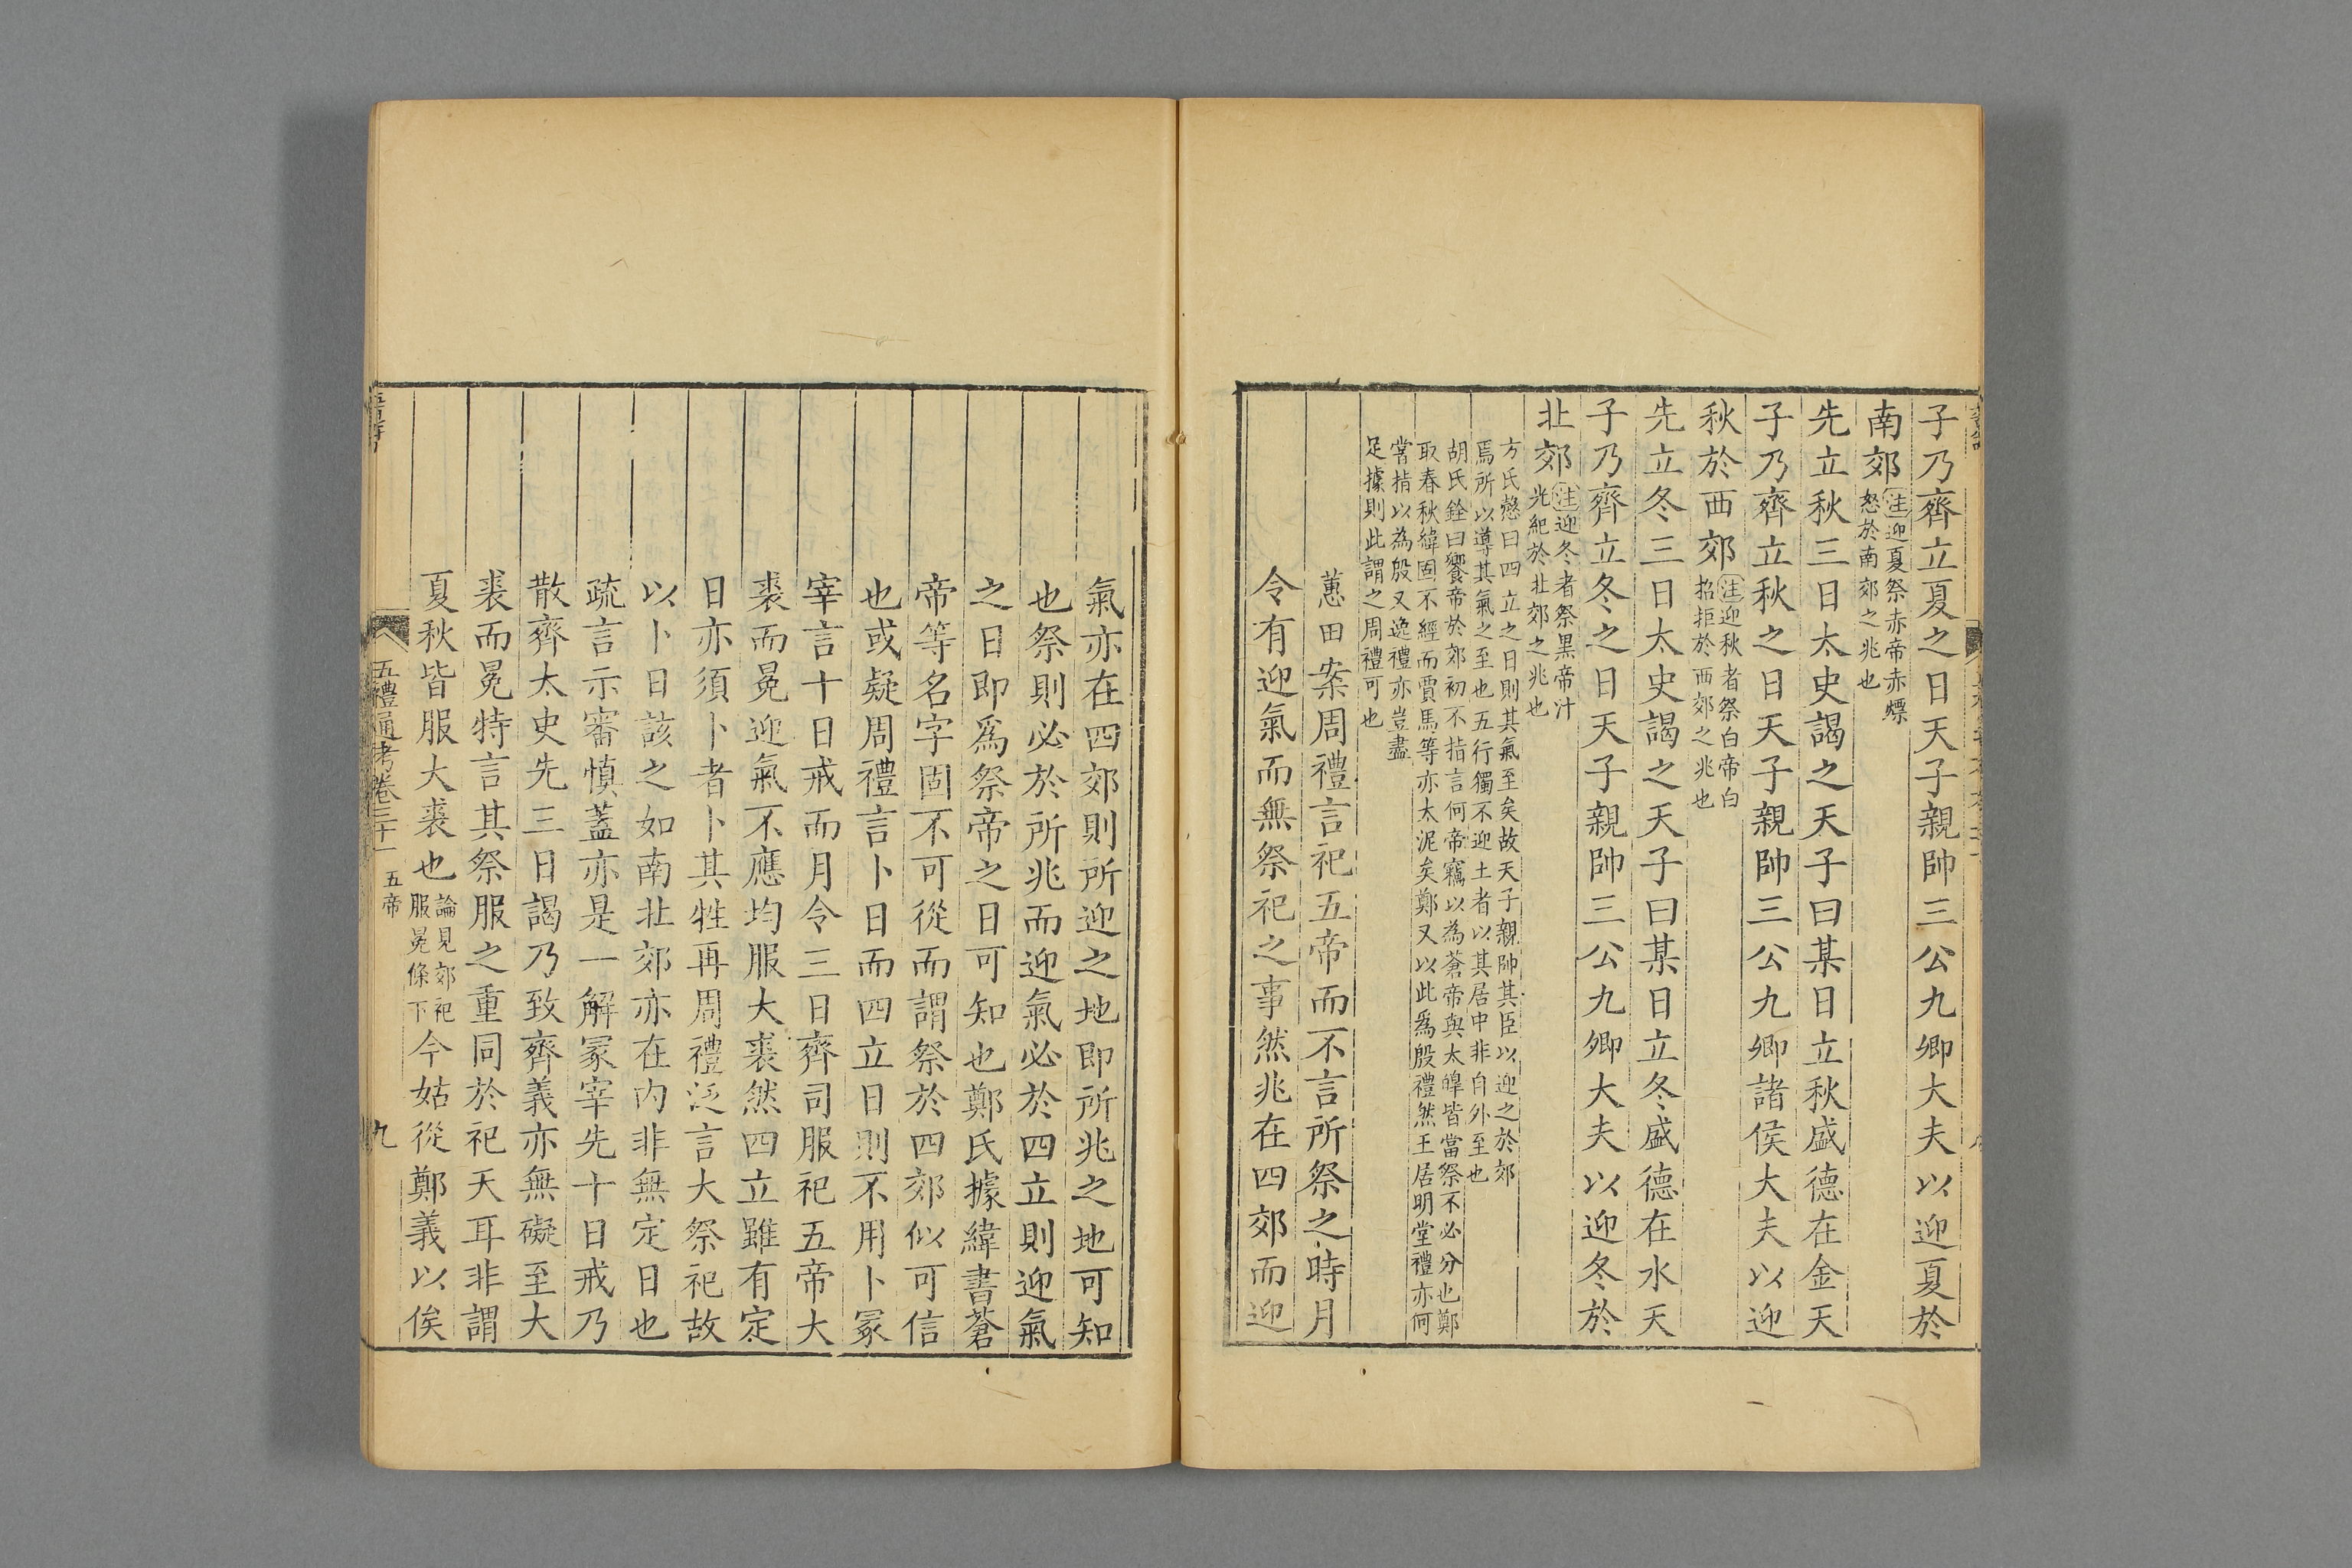 子乃齊立夏之日天子親帥三公九卿大夫以迎夏於
南郊注迎夏祭赤帝赤熛
怒於南郊之兆也
先立秋三日太史謁之天子曰某日立秋盛德在金天
子乃齊立秋之日天子親帥三公九卿諸侯大夫以迎
秋於西郊注迎秋者祭白帝白
招拒於西郊之兆也
先立冬三日太史謁之天子曰某日立冬盛德在水天
子乃齊立冬之日天子親帥三公九卿大夫以迎冬於
北郊注迎冬者祭黑帝汁
光紀於北郊之兆也
方氏慤曰四立之日則其氣至矣故天子親帥其臣以迎之於郊
焉所以導其氣之至也五行獨不迎土者以其居中非自外至也
胡氏銓曰饗帝於郊初不指言何帝竊以為蒼帝與太皥皆當祭不必分也鄭
取春秋緯固不經而賈馬等亦太泥矣鄭又以此爲殷禮然王居明堂禮亦何
嘗指以為殷又逸禮亦豈盡
足據則此謂之周禮可也
蕙田案周禮言祀五帝而不言所祭之時月
令有迎氣而無祭祀之事然兆在四郊而迎
氣亦在四郊則所迎之地即所兆之地可知
也祭則必於所兆而迎氣必於四立則迎氣
之日即爲祭帝之日可知也鄭氏據緯書蒼
帝等名字固不可從而謂祭於四郊似可信
也或疑周禮言卜日而四立日則不用卜冢
宰言十日戒而月令三日齊司服祀五帝大
裘而冕迎氣不應均服大裘然四立雖有定
日亦須卜者卜其牲再周禮泛言大祭祀故
以卜日該之如南北郊亦在内非無定日也
疏言示審慎蓋亦是一解冢宰先十日戒乃
散齊太史先三日謁乃致齊義亦無礙至大
裘而冕特言其祭服之重同於祀天耳非謂
夏秋皆服大裘也論見郊祀
服冕條下今姑從鄭義以俟
五禮通考卷三十一 五帝 九